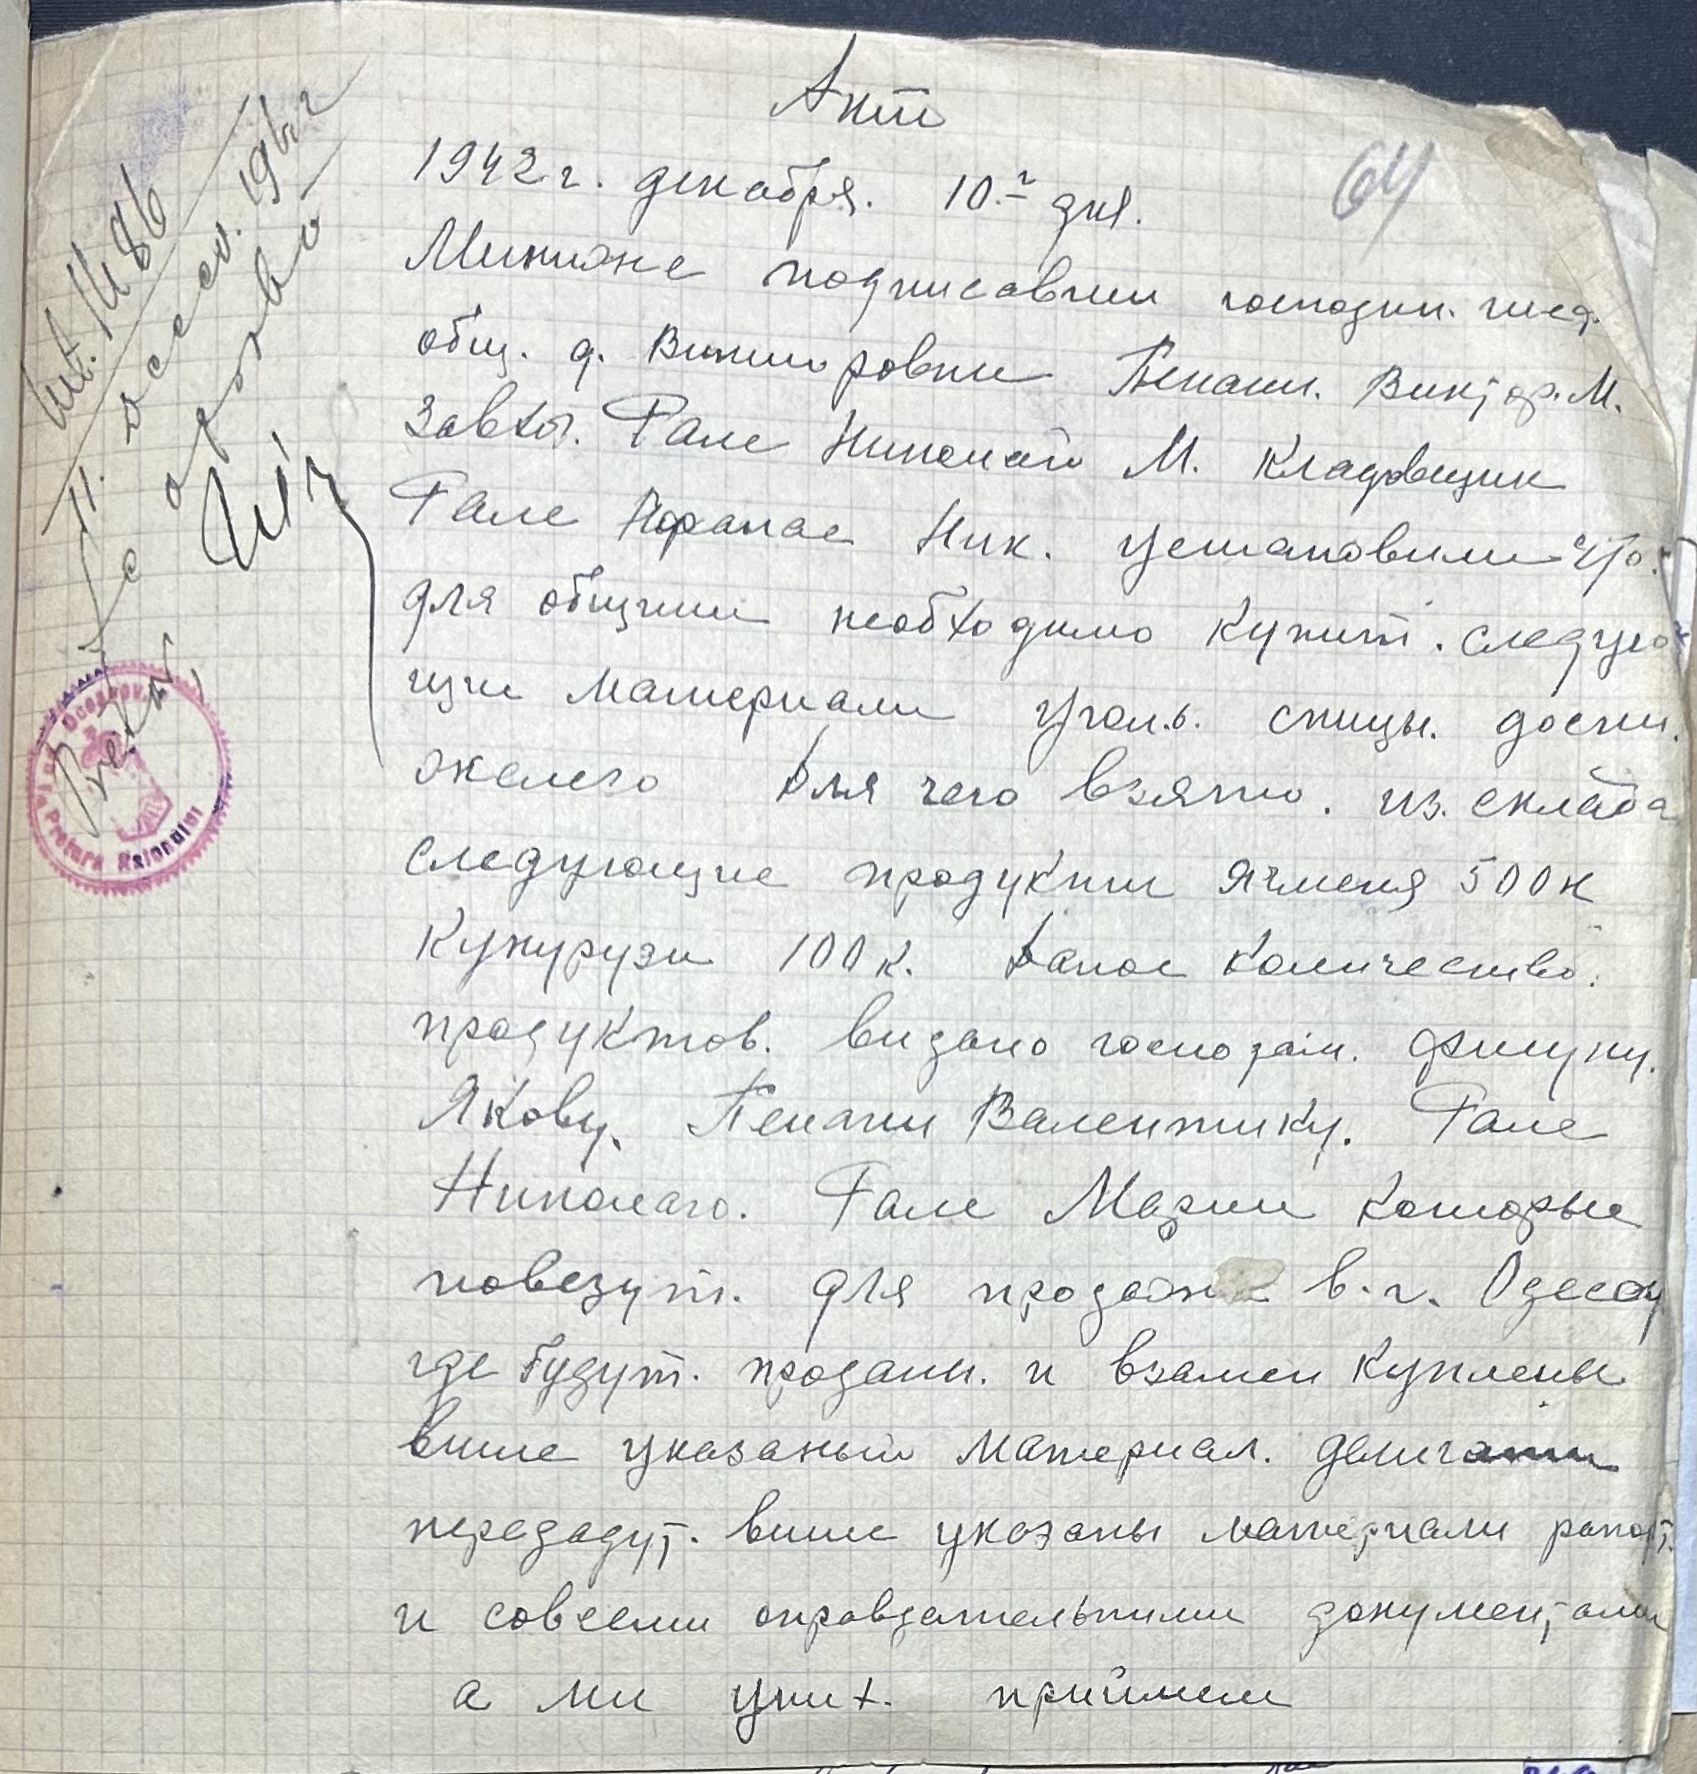 Акт
64
1942 г. декабря. 10.г дня.
Мининже подписавши господин. пред.
общ. д. Викторовки Пенаки. Виктор. М.
Завхоз. Гале Николай М. Кладовщик
Гале Афанас Ник. установили что.
для общини необходимо купит. следую
щи материали уголь. спицы. доски.
железо Для чего взято. из. склада
следующие продукти ячменя 500 к
Кукурузи 100 к. Даное количество.
продуктов. видано господам. Филипу.
Якову. Пенаки Валентину. Гале
Николаю. Гале Марии которые
повезут. для продажи в. г. Одесу
где будут. продани. и взамен куплены
више указаный материал. делигати
передадут. више указаны материали
и совсеми оправдательними документами
а ми уних. приймем
Int. 1486
11. 1942
se aprobă
Pretor
Pretura Raionului